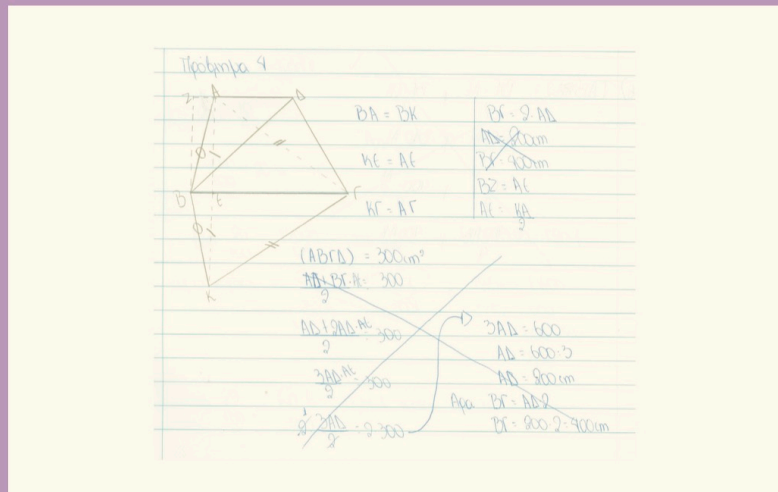 Πρόβλημα 4
Ζ Α Δ
Β Ε Γ
Κ
ΒΑ = ΒΚ
ΚΕ = ΑΕ
ΚΓ = ΑΓ
ΒΓ = 2·ΑΔ
ΑΔ = 200cm
ΒΓ = 400cm
ΒΖ = ΑΕ
ΑΕ = ΚΑ/2
(ΑΒΓΔ) = 300cm²
ΑΔ+ΒΓ·ΑΕ/2 = 300
ΑΔ+2ΑΔ·ΑΕ/2 = 300
3ΑΔ·ΑΕ/2 = 300
2·3ΑΔ/2 = 2·300
3ΑΔ = 600
ΑΔ = 600:3
ΑΔ = 200cm
Άρα ΒΓ = ΑΔ·2
ΒΓ = 200·2=400cm